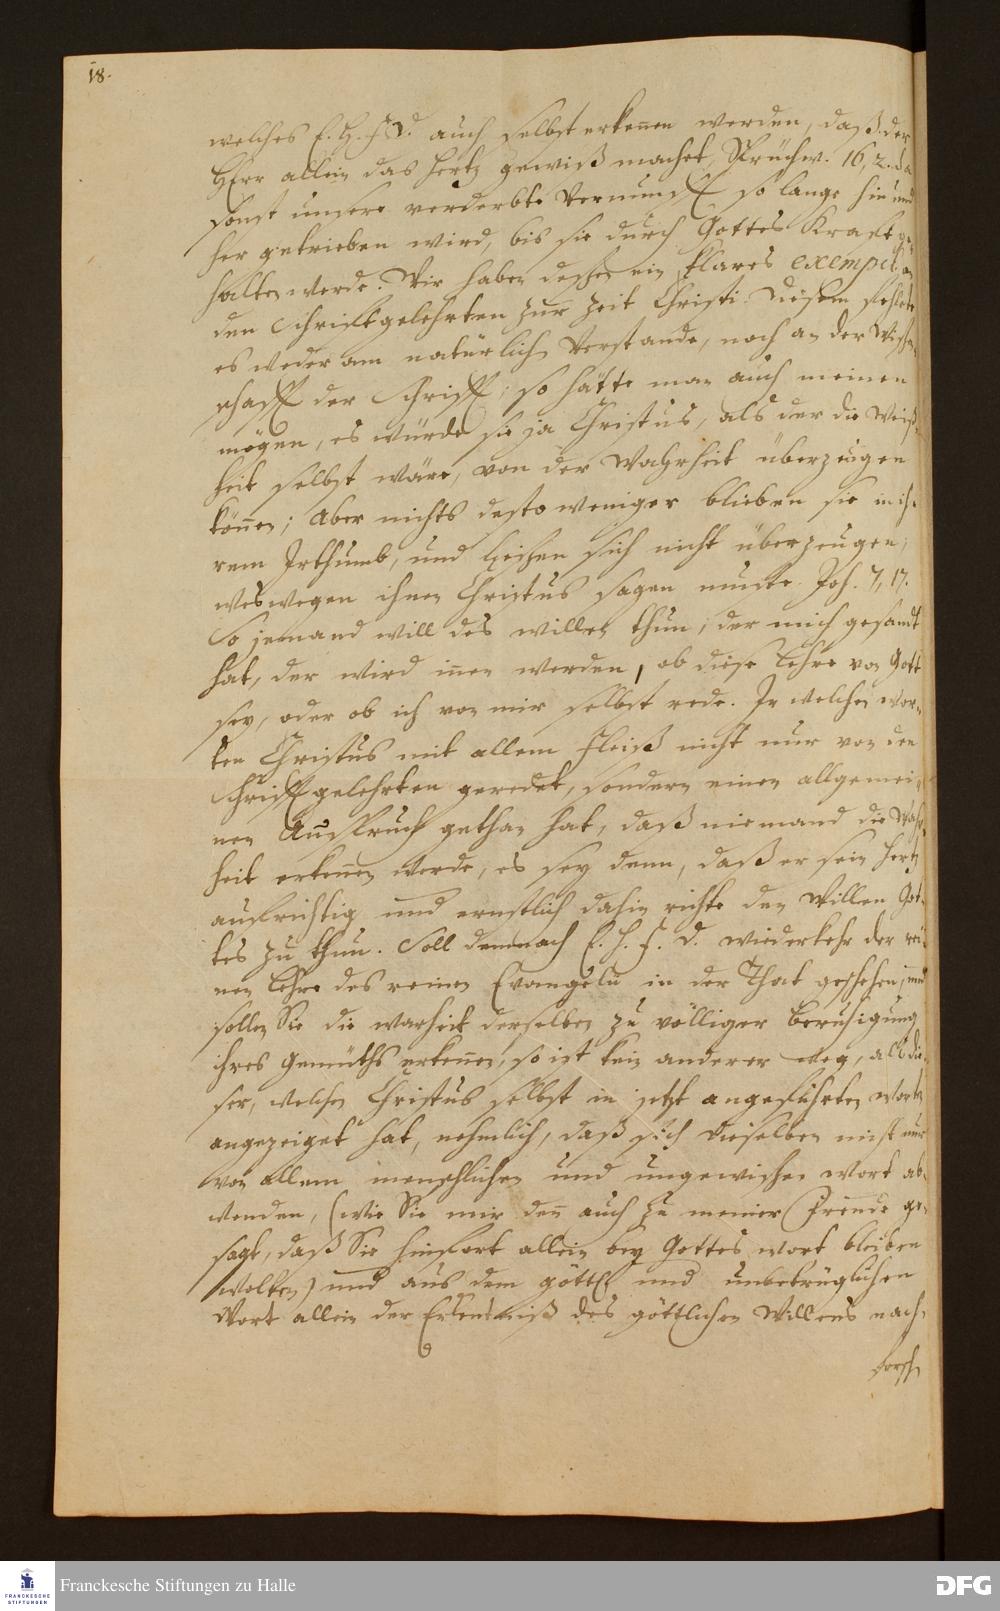 18.
welches E. H. F. D. auch selbst erkennen werden, daß der
HErr allein das Hertz gewiß machet, Sprüchw. 16, 2. da
sonst unsere verderbte Vernunfft so lange hin und
her getrieben wird, bis sie durch Gottes Krafft ge-
halten werde. Wir haben deßen ein klares exempel an
den Schrifftgelehrten zur Zeit Christi. Diesen fehlete
es weder am natürlichen Verstande, noch an der Wißen-
schafft der Schrifft; so hätte man auch meinen
mögen, es würde sie ja Christus, als der die Weiß-
heit selbst wäre, von der Wahrheit überzeugen
können; Aber nichts desto weniger blieben sie in ih-
rem Irthumb, und ließen sich nicht überzeugen;
weswegen ihnen Christus sagen muste Joh. 7, 17.
So jemand will des willen thun, der mich gesandt
hat, der wird innen werden, ob diese Lehre von Gott
sey, oder ob ich von mir selbst rede. In welchen wor-
ten Christus mit allem Fleiß nicht nur von den
Schrifftgelehrten geredet, sondern einen allgemei-
nen Ausspruch gethan hat, daß niemand die Wahr-
heit erkennen werde, es sey denn, daß er sein Hertz
aufrichtig und ernstlich dahin richte den Willen Got-
tes zu thun. Soll demnach E. H. F. D. wiederkehr der rei-
nen Lehre des reinen Evangelii in der That geschehen, und
sollen Sie die warheit derselben zu völliger Beruhigung
ihres Gemüths erkennen, so ist kein anderer weg, als die-
ser, welchen Christus selbst in jetzt angeführten Worten
angezeiget hat, nehmlich, daß sich dieselben nicht nur
von allem menschlichen und ungewißen Wort ab-
wenden, (wie Sie mir denn auch zu meiner Freude ge-
sagt, daß Sie hinfort allein bey Gottes wort bleiben
wolten) und aus dem göttl. und unbetrüglichen
Wort allein der Erkentniß des göttlichen Willens nach-
forsch
Franckesche Stiftungen zu Halle
FRANCKESCHE
STIFTUNGEN
DFG